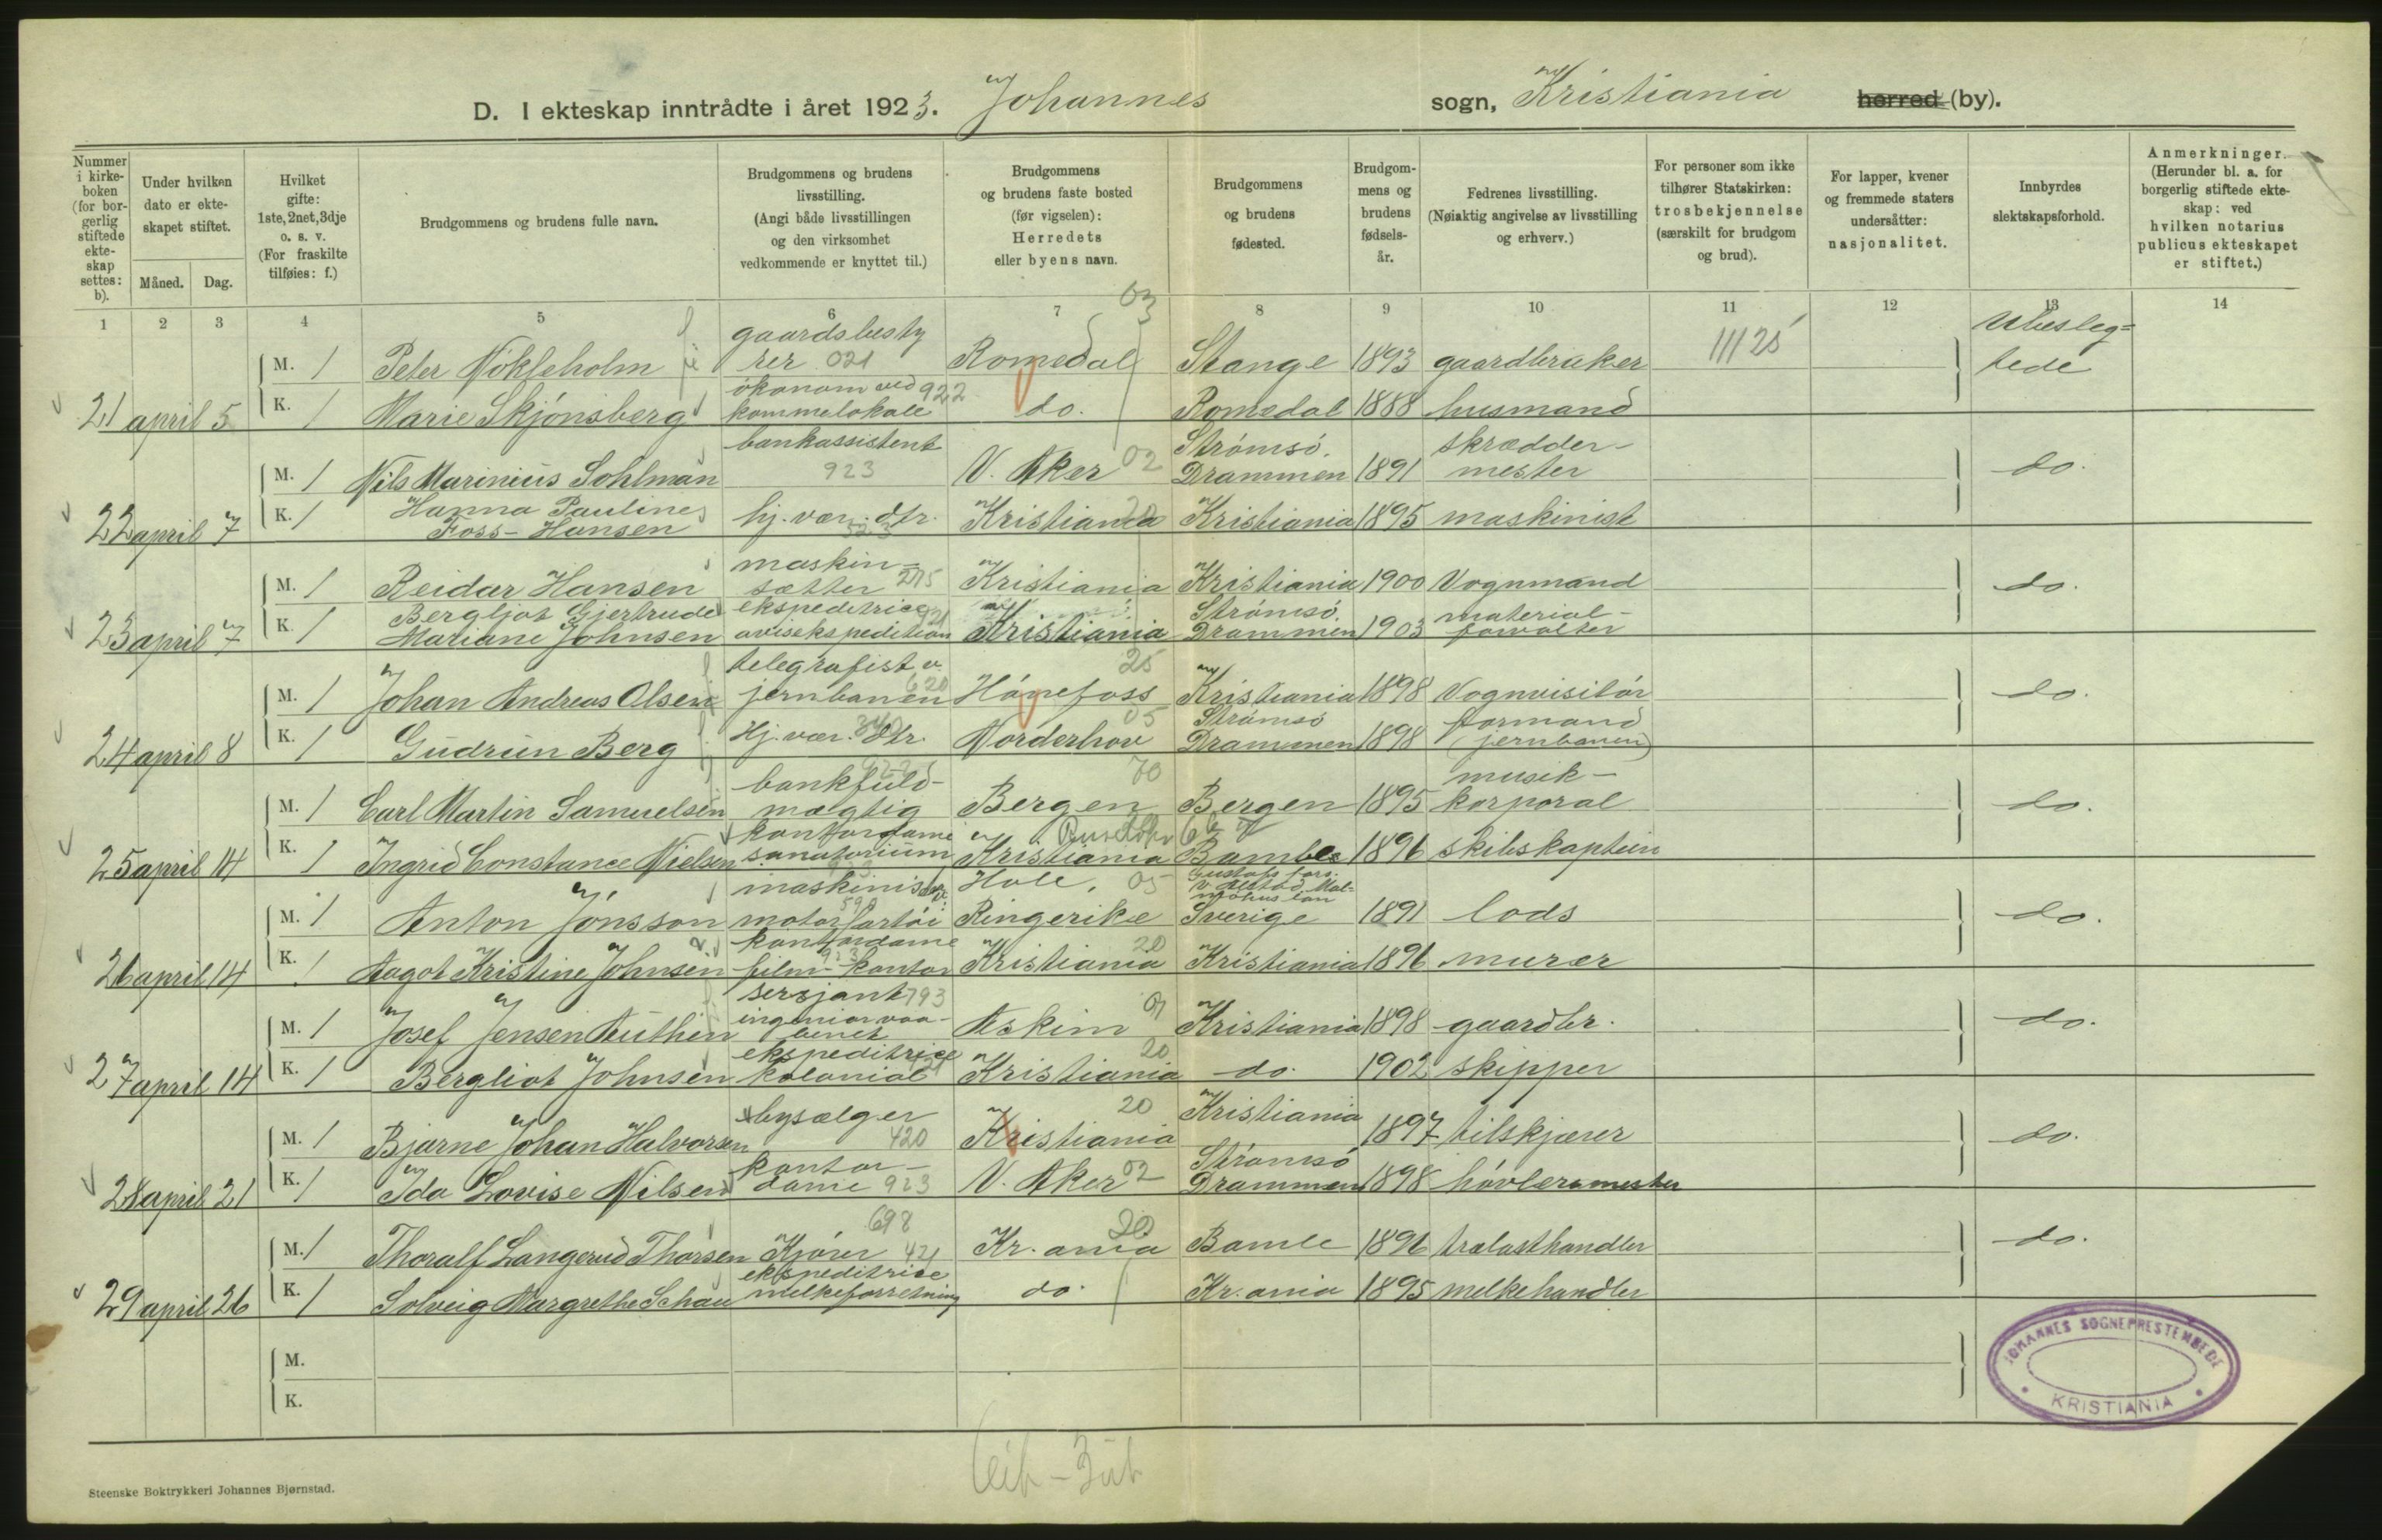 D. I ekteskap inntrådte i året 1923. Johannes sogn, Kristiania herred (by).
Nummer i kirkeboken (for borgerlig stiftede ekteskap settes: b).
Under hvilken dato er ekteskapet stiftet.
Måned. Dag.
Hvilket gifte: 1ste, 2net, 3dje o. s. v. (For fraskilte tilføies: f.)
Brudgommens og brudens fulle navn.
Brudgommens og brudens livsstilling. (Angi både livsstillingen og den virksomhet vedkommende er knyttet til.)
Brudgommens og brudens faste bosted (før vigselen): Herredets eller byens navn.
Brudgommens og brudens fødested.
Brudgommens og brudens fødselsår.
Fedrenes livsstilling. (Nøiaktig angivelse av livsstilling og erhverv.)
For personer som ikke tilhører Statskirken: trosbekjennelse (særskilt for brudgom og brud).
For lapper, kvener og fremmede staters undersåtter: nasjonalitet.
Innbyrdes slektskapsforhold.
Anmerkninger. (Herunder bl. a. for borgerlig stiftede ekteskap: ved hvilken notarius publicus ekteskapet er stiftet.)
1 2 3 4 5 6 7 8 9 10 11 12 13 14
03
M. 1 Peter Nökleholm gaardsbesty rer 021 Romedal Stange 1893 gaardbruker 111 25 Ubesleg= tede
21 april 5 K. 1 Marie Skjönsberg ökonom ved 922 do. Romedal 1888 husmand
M. 1 Nils Marinius Sohlman bankassistent 923 V. Aker 02 Strömsö. Drammen 1891 skrædder- mester do.
22 april 7 K. 1 Hanna Pauline Foss-Hansen hj. vær. dtr. Kristiania Kristiania 1895 maskinist
M. 1 Reidar Hansen maskin- sætter 215 Kristiania Kristiania 1900 Vognmand do.
23 april 7 K. 1 Bergljot Gjertrude Mariane Johnsen ekspeditrice avisekspedition Kristiania Strömsö. Drammen 1903 material- forvalter
M. 1 Johan Andreas Olsen telegrafist v. jernbanen 620 Hönefoss 25 Kristiania 1898 Vognvisitör do.
24 april 8 K. 1 Gudrun Berg Hj. vær. dtr. Norderhov 05 Strömsö Drammen 1898 formand (jernbanen)
M. 1 Carl Martin Samuelsen bankfuld- mægtig Bergen 70 Bergen 1895 musik- korporal do.
25 april 14 K. 1 Ingrid Constance Nielsen kontordame sanatorium Kristiania Bamble 1896 skibskaptein
M. 1 Anton Jönsson maskinist motorfartöi 590 Hole, 05 Ringerike Sverige 1891 lods do.
26 april 14 K. 1 Aagot Kristine Johnsen kontordame film-kontor Kristiania 20 Kristiania 1896 murer
M. 1 Josef Jensen Authen sersjant 793 ingeniørvaa- benet Askim 01 Kristiania 1898 gaardbr. do.
27 april 14 K. 1 Bergliot Johnsen ekspeditrice kolonial Kristiania 20 do. 1902 skipper
M. 1 Bjarne Johan Halvorsen bysælger 420 Kristiania 20 Kristiania 1897 tilskjærer do.
28 april 21 K. 1 Ida Lovise Nilsen kontor- dame 923 V. Aker 02 Strömsö Drammen 1898 hövlermester
M. 1 Thoralf Langerud Thorsen Kjörer 698 Kr.ania 20 Bamle 1896 trælasthandler do.
29 april 26 K. 1 Solveig Margrethe Schau ekspeditrice 421 melkeforretning do. Kr.ania 1895 melkehandler
M.
K.
JOHANNES SOGNEPRESTEMBEDE
KRISTIANIA
Steenske Boktrykkeri Johannes Bjørnstad.